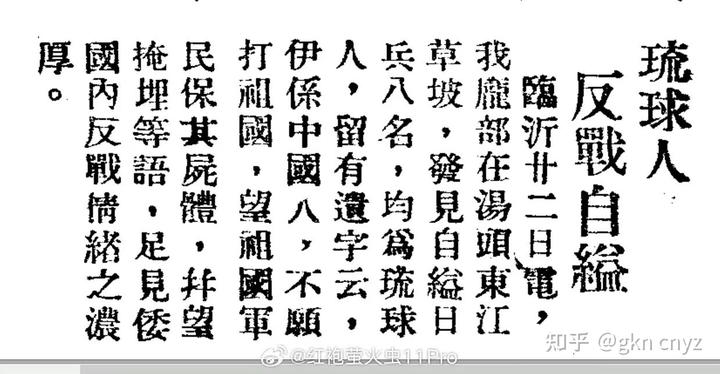 琉球人
反戰自縊
臨沂廿二日電，
我龐部在湯頭東江
草坡，發見自縊日
兵八名，均為琉球
人，留有遺字云，
伊係中國人，不願
打祖國，望祖國軍
民保其屍體，幷望
掩埋等語，足見倭
國內反戰情緒之濃
厚。
@红袍萤火虫11Pro
知乎 @gkn cnyz